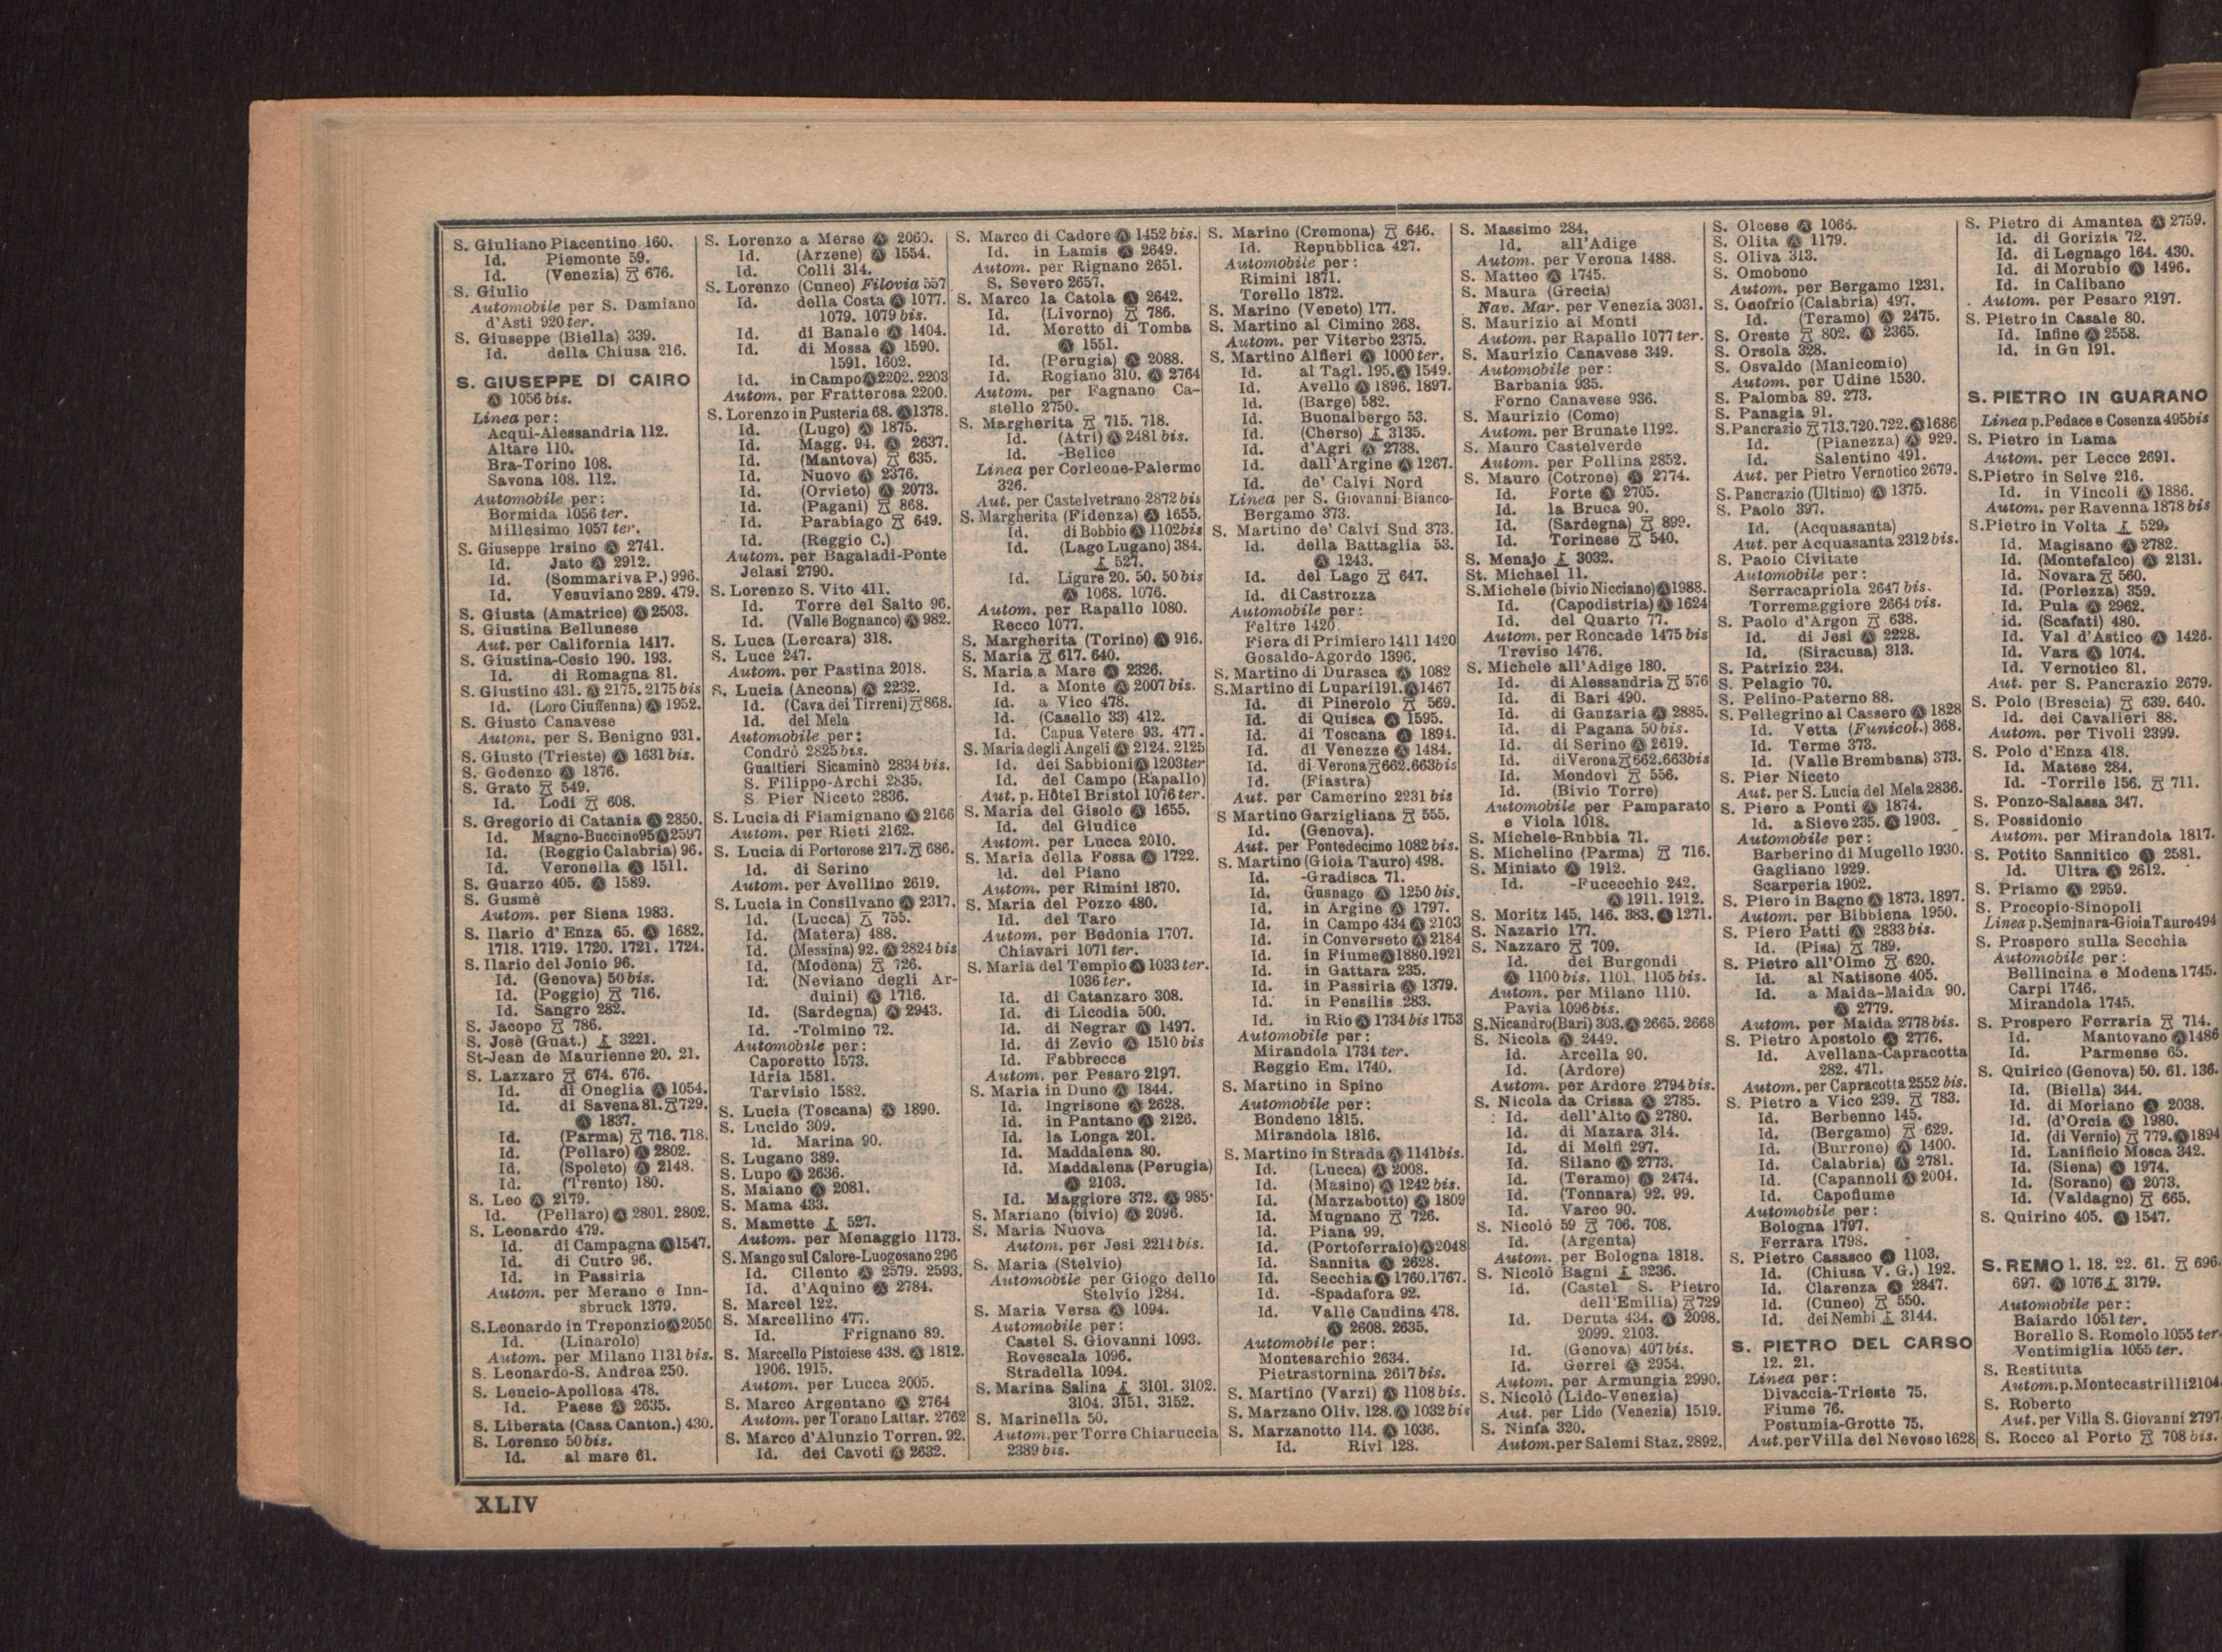 S. Giuliano Piacentino 160.
Id. Piemonte 59.
Id. (Venezia) 676.
S. Giulio
Automobile per S. Damiano
d'Asti 920 ter.
S. Giuseppe (Biella) 339.
Id. della Chiusa 216.
S. GIUSEPPE DI CAIRO
Ⓐ 1056 bis.
Linea per:
Acqui-Alessandria 112.
Altare 110.
Bra-Torino 108.
Savona 108. 112.
Automobile per:
Bormida 1056 ter.
Millesimo 1057 ter.
S. Giuseppe Irsino Ⓐ 2741.
Id. Jato Ⓐ 2912.
Id. (Sommariva P.) 996.
Id. Vesuviano 289. 479.
S. Giusta (Amatrice) Ⓐ 2503.
S. Giustina Bellunese
Aut. per California 1417.
S. Giustina-Cesio 190. 193.
Id. di Romagna 81.
S. Giustino 431. Ⓐ 2175. 2175 bis
Id. (Loro Ciuffenna) Ⓐ 1952.
S. Giusto Canavese
Autom. per S. Benigno 931.
S. Giusto (Trieste) Ⓐ 1631 bis.
S. Godenzo Ⓐ 1876.
S. Grato 549.
Id. Lodi 608.
S. Gregorio di Catania Ⓐ 2850.
Id. Magno-Buccino 95 Ⓐ 2597
Id. (Reggio Calabria) 96.
Id. Veronella Ⓐ 1511.
S. Guarzo 405. Ⓐ 1589.
S. Gusmè
Autom. per Siena 1983.
S. Ilario d'Enza 65. Ⓐ 1682.
1718. 1719. 1720. 1721. 1724.
S. Ilario del Jonio 96.
Id. (Genova) 50 bis.
Id. (Poggio) 716.
Id. Sangro 282.
S. Jacopo 786.
S. Josè (Guat.) 3221.
St-Jean de Maurienne 20. 21.
S. Lazzaro 674. 676.
Id. di Oneglia Ⓐ 1054.
Id. di Savena 81. 729.
Ⓐ 1837.
Id. (Parma) 716. 718.
Id. (Pellaro) Ⓐ 2802.
Id. (Spoleto) Ⓐ 2148.
Id. (Trento) 180.
S. Leo Ⓐ 2179.
Id. (Pellaro) Ⓐ 2801. 2802.
S. Leonardo 479.
Id. di Campagna Ⓐ 1547.
Id. di Cutro 96.
Id. in Passiria
Autom. per Merano e Inn-
sbruck 1379.
S. Leonardo in Treponzio Ⓐ 2050
Id. (Linarolo)
Autom. per Milano 1131 bis.
S. Leonardo-S. Andrea 250.
S. Leucio-Apollosa 478.
Id. Paese Ⓐ 2635.
S. Liberata (Casa Canton.) 430.
S. Lorenzo 50 bis.
Id. al mare 61.
S. Lorenzo a Merse Ⓐ 2060.
Id. (Arzene) Ⓐ 1554.
Id. Colli 314.
S. Lorenzo (Cuneo) Filovia 557
Id. della Costa Ⓐ 1077.
1079. 1079 bis.
Id. di Banale Ⓐ 1404.
Id. di Mossa Ⓐ 1590.
1591. 1602.
Id. in Campo Ⓐ 2202. 2203
Autom. per Fratterosa 2200.
S. Lorenzo in Pusteria 68. Ⓐ 1378.
Id. (Lugo) Ⓐ 1875.
Id. Magg. 94. Ⓐ 2637.
Id. (Mantova) 635.
Id. Nuovo Ⓐ 2376.
Id. (Orvieto) Ⓐ 2073.
Id. (Pagani) 868.
Id. Parabiago 649.
Id. (Reggio C.)
Autom. per Bagaladi-Ponte
Jelasi 2790.
S. Lorenzo S. Vito 411.
Id. Torre del Salto 96.
Id. (Valle Bognanco) Ⓐ 982.
S. Luca (Lercara) 318.
S. Luce 247.
Autom. per Pastina 2018.
S. Lucia (Ancona) Ⓐ 2232.
Id. (Cava dei Tirreni) 868.
Id. del Mela
Automobile per:
Condrò 2825 bis.
Gualtieri Sicaminò 2834 bis.
S. Filippo-Archi 2835.
S Pier Niceto 2836.
S. Lucia di Fiamignano Ⓐ 2166
Autom. per Rieti 2162.
S. Lucia di Portorose 217. 686.
Id. di Serino
Autom. per Avellino 2619.
S. Lucia in Consilvano Ⓐ 2317.
Id. (Lucca) 755.
Id. (Matera) 488.
Id. (Messina) 92. Ⓐ 2824 bis
Id. (Modena) 726.
Id. (Neviano degli Ar-
duini) Ⓐ 1716.
Id. (Sardegna) Ⓐ 2943.
Id. -Tolmino 72.
Automobile per:
Caporetto 1573.
Idria 1581.
Tarvisio 1582.
S. Lucia (Toscana) Ⓐ 1890.
S. Lucido 309.
Id. Marina 90.
S. Lugano 389.
S. Lupo Ⓐ 2636.
S. Maiano Ⓐ 2081.
S. Mama 433.
S. Mamette 527.
Autom. per Menaggio 1173.
S. Mango sul Calore-Luogosano 296
Id. Cilento Ⓐ 2579. 2593.
Id. d'Aquino Ⓐ 2784.
S. Marcel 122.
S. Marcellino 477.
Id. Frignano 89.
S. Marcello Pistoiese 438. Ⓐ 1812.
1906. 1915.
Autom. per Lucca 2005.
S. Marco Argentano Ⓐ 2764
Autom. per Torano Lattar. 2762
S. Marco d'Alunzio Torren. 92.
Id. dei Cavoti Ⓐ 2632.
S. Marco di Cadore Ⓐ 1452 bis.
Id. in Lamis Ⓐ 2649.
Autom. per Rignano 2651.
S. Severo 2657.
S. Marco la Catola Ⓐ 2642.
Id. (Livorno) 786.
Id. Moretto di Tomba
Ⓐ 1551.
Id. (Perugia) Ⓐ 2088.
Id. Rogiano 310. Ⓐ 2764
Autom. per Fagnano Ca-
stello 2750.
S. Margherita 715. 718.
Id. (Atri) Ⓐ 2481 bis.
Id. -Belice
Linea per Corleone-Palermo
326.
Aut. per Castelvetrano 2872 bis
S. Margherita (Fidenza) Ⓐ 1655.
Id. di Bobbio Ⓐ 1102 bis
Id. (Lago Lugano) 384.
527.
Id. Ligure 20. 50. 50 bis
Ⓐ 1068. 1076.
Autom. per Rapallo 1080.
Recco 1077.
S. Margherita (Torino) Ⓐ 916.
S. Maria 617. 640.
S. Maria a Mare Ⓐ 2326.
Id. a Monte Ⓐ 2007 bis.
Id. a Vico 478.
Id. (Casello 33) 412.
Id. Capua Vetere 93. 477.
S. Maria degli Angeli Ⓐ 2124. 2125
Id. dei Sabbioni Ⓐ 1203 ter
Id. del Campo (Rapallo)
Aut. p. Hôtel Bristol 1076 ter.
S. Maria del Gisolo Ⓐ 1655.
Id. del Giudice
Autom. per Lucca 2010.
S. Maria della Fossa Ⓐ 1722.
Id. del Piano
Autom. per Rimini 1870.
S. Maria del Pozzo 480.
Id. del Taro
Autom. per Bedonia 1707.
Chiavari 1071 ter.
S. Maria del Tempio Ⓐ 1033 ter.
1036 ter.
Id. di Catanzaro 308.
Id. di Licodia 500.
Id. di Negrar Ⓐ 1497.
Id. di Zevio Ⓐ 1510 bis
Id. Fabbrecce
Autom. per Pesaro 2197.
S. Maria in Duno Ⓐ 1844.
Id. Ingrisone Ⓐ 2628.
Id. in Pantano Ⓐ 2126.
Id. la Longa 201.
Id. Maddalena 80.
Id. Maddalena (Perugia)
Ⓐ 2103.
Id. Maggiore 372. Ⓐ 985.
S. Mariano (bivio) Ⓐ 2096.
S. Maria Nuova
Autom. per Jesi 2214 bis.
S. Maria (Stelvio)
Automobile per Giogo dello
Stelvio 1284.
S. Maria Versa Ⓐ 1094.
Automobile per:
Castel S. Giovanni 1093.
Rovescala 1096.
Stradella 1094.
S. Marina Salina 3101. 3102.
3104. 3151. 3152.
S. Marinella 50.
Autom. per Torre Chiaruccia
2389 bis.
S. Marino (Cremona) 646.
Id. Repubblica 427.
Automobile per:
Rimini 1871.
Torello 1872.
S. Marino (Veneto) 177.
S. Martino al Cimino 268.
Autom. per Viterbo 2375.
S. Martino Alfieri Ⓐ 1000 ter.
Id. al Tagl. 195. Ⓐ 1549.
Id. Avello Ⓐ 1896. 1897.
Id. (Barge) 582.
Id. Buonalbergo 53.
Id. (Cherso) 3135.
Id. d'Agri Ⓐ 2738.
Id. dall'Argine Ⓐ 1267.
Id. de' Calvi Nord
Linea per S. Giovanni Bianco-
Bergamo 373.
S. Martino de' Calvi Sud 373.
Id. della Battaglia 53.
Ⓐ 1243.
Id. del Lago 647.
Id. di Castrozza
Automobile per:
Feltre 1420.
Fiera di Primiero 1411 1420
Gosaldo-Agordo 1396.
S. Martino di Durasca Ⓐ 1082
S. Martino di Lupari 191. Ⓐ 1467
Id. di Pinerolo 569.
Id. di Quisca Ⓐ 1595.
Id. di Toscana Ⓐ 1894.
Id. di Venezze Ⓐ 1484.
Id. di Verona 662. 663 bis
Id. (Fiastra)
Aut. per Camerino 2231 bis
S Martino Garzigliana 555.
Id. (Genova).
Aut. per Pontedecimo 1082 bis.
S. Martino (Gioia Tauro) 498.
Id. -Gradisca 71.
Id. Gusnago Ⓐ 1250 bis.
Id. in Argine Ⓐ 1797.
Id. in Campo 434 Ⓐ 2103
Id. in Converseto Ⓐ 2184
Id. in Fiume Ⓐ 1880. 1921
Id. in Gattara 235.
Id. in Passiria Ⓐ 1379.
Id. in Pensilis 283.
Id. in Rio Ⓐ 1734 bis 1753
Automobile per:
Mirandola 1734 ter.
Reggio Em. 1740.
S. Martino in Spino
Automobile per:
Bondeno 1815.
Mirandola 1816.
S. Martino in Strada Ⓐ 1141 bis.
Id. (Lucca) Ⓐ 2008.
Id. (Masino) Ⓐ 1242 bis.
Id. (Marzabotto) Ⓐ 1809
Id. Mugnano 726.
Id. Piana 99.
Id. (Portoferraio) Ⓐ 2048
Id. Sannita Ⓐ 2628.
Id. Secchia Ⓐ 1760. 1767.
Id. -Spadafora 92.
Id. Valle Caudina 478.
Ⓐ 2608. 2635.
Automobile per:
Montesarchio 2634.
Pietrastornina 2617 bis.
S. Martino (Varzi) Ⓐ 1108 bis.
S. Marzano Oliv. 128. Ⓐ 1032 bis
S. Marzanotto 114. Ⓐ 1036.
Id. Rivi 128.
S. Massimo 284.
Id. all'Adige
Autom. per Verona 1488.
S. Matteo Ⓐ 1745.
S. Maura (Grecia)
Nav. Mar. per Venezia 3031.
S. Maurizio ai Monti
Autom. per Rapallo 1077 ter.
S. Maurizio Canavese 349.
Automobile per:
Barbania 935.
Forno Canavese 936.
S. Maurizio (Como)
Autom. per Brunate 1192.
S. Mauro Castelverde
Autom. per Pollina 2852.
S. Mauro (Cotrone) Ⓐ 2774.
Id. Forte Ⓐ 2705.
Id. la Bruca 90.
Id. (Sardegna) 899.
Id. Torinese 540.
S. Menajo 3032.
St. Michael 11.
S. Michele (bivio Nicciano) Ⓐ 1988.
Id. (Capodistria) Ⓐ 1624
Id. del Quarto 77.
Autom. per Roncade 1475 bis
Treviso 1476.
S. Michele all'Adige 180.
Id. di Alessandria 576
Id. di Bari 490.
Id. di Ganzaria Ⓐ 2885.
Id. di Pagana 50 bis.
Id. di Serino Ⓐ 2619.
Id. di Verona 662. 663 bis
Id. Mondovì 556.
Id. (Bivio Torre)
Automobile per Pamparato
e Viola 1018.
S. Michele-Rubbia 71.
S. Michelino (Parma) 716.
S. Miniato Ⓐ 1912.
Id. -Fucecchio 242.
Ⓐ 1911. 1912.
S. Moritz 145. 146. 383. Ⓐ 1271.
S. Nazario 177.
S. Nazzaro 709.
Id. dei Burgondi
Ⓐ 1100 bis. 1101. 1105 bis.
Autom. per Milano 1110.
Pavia 1096 bis.
S. Nicandro (Bari) 303. Ⓐ 2665. 2668
S. Nicola Ⓐ 2449.
Id. Arcella 90.
Id. (Ardore)
Autom. per Ardore 2794 bis.
S. Nicola da Crissa Ⓐ 2785.
Id. dell'Alto Ⓐ 2780.
Id. di Mazara 314.
Id. di Melfi 297.
Id. Silano Ⓐ 2773.
Id. (Teramo) Ⓐ 2474.
Id. (Tonnara) 92. 99.
Id. Varco 90.
S. Nicolò 59 706. 708.
Id. (Argenta)
Autom. per Bologna 1818.
S. Nicolò Bagni 3236.
Id. (Castel S. Pietro
dell'Emilia) 729
Id. Deruta 434. Ⓐ 2098.
2099. 2103.
Id. (Genova) 407 bis.
Id. Gerrei Ⓐ 2954.
Autom. per Armungia 2990.
S. Nicolò (Lido-Venezia)
Aut. per Lido (Venezia) 1519.
S. Ninfa 320.
Autom. per Salemi Staz. 2892.
S. Olcese Ⓐ 1066.
S. Olita Ⓐ 1179.
S. Oliva 313.
S. Omobono
Autom. per Bergamo 1231.
S. Onofrio (Calabria) 497.
Id. (Teramo) Ⓐ 2475.
S. Oreste 802. Ⓐ 2365.
S. Orsola 328.
S. Osvaldo (Manicomio)
Autom. per Udine 1530.
S. Palomba 89. 273.
S. Panagia 91.
S. Pancrazio 713. 720. 722. Ⓐ 1686
Id. (Pianezza) Ⓐ 929.
Id. Salentino 491.
Aut. per Pietro Vernotico 2679.
S. Pancrazio (Ultimo) Ⓐ 1375.
S. Paolo 397.
Id. (Acquasanta)
Aut. per Acquasanta 2312 bis.
S. Paolo Civitate
Automobile per:
Serracapriola 2647 bis.
Torremaggiore 2664 bis.
S. Paolo d'Argon 638.
Id. di Jesi Ⓐ 2228.
Id. (Siracusa) 313.
S. Patrizio 234.
S. Pelagio 70.
S. Pelino-Paterno 88.
S. Pellegrino al Cassero Ⓐ 1828
Id. Vetta (Funicol.) 368.
Id. Terme 373.
Id. (Valle Brembana) 373.
S. Pier Niceto
Aut. per S. Lucia del Mela 2836.
S. Piero a Ponti Ⓐ 1874.
Id. a Sieve 235. Ⓐ 1903.
Automobile per:
Barberino di Mugello 1930.
Gagliano 1929.
Scarperia 1902.
S. Piero in Bagno Ⓐ 1873. 1897.
Autom. per Bibbiena 1950.
S. Piero Patti Ⓐ 2833 bis.
Id. (Pisa) 789.
S. Pietro all'Olmo 620.
Id. al Natisone 405.
Id. a Maida-Maida 90.
Ⓐ 2779.
Autom. per Maida 2778 bis.
S. Pietro Apostolo Ⓐ 2776.
Id. Avellana-Capracotta
282. 471.
Autom. per Capracotta 2552 bis.
S. Pietro a Vico 239. 783.
Id. Berbenno 145.
Id. (Bergamo) 629.
Id. (Burrone) Ⓐ 1400.
Id. Calabria) Ⓐ 2781.
Id. (Capannoli Ⓐ 2004.
Id. Capofiume
Automobile per:
Bologna 1797.
Ferrara 1798.
S. Pietro Casasco Ⓐ 1103.
Id. (Chiusa V. G.) 192.
Id. Clarenza Ⓐ 2847.
Id. (Cuneo) 550.
Id. dei Nembi 3144.
S. PIETRO DEL CARSO
12. 21.
Linea per:
Divaccia-Trieste 75.
Fiume 76.
Postumia-Grotte 75.
Aut. per Villa del Nevoso 1628
S. Pietro di Amantea Ⓐ 2759.
Id. di Gorizia 72.
Id. di Legnago 164. 430.
Id. di Morubio Ⓐ 1496.
Id. in Calibano
Autom. per Pesaro 2197.
S. Pietro in Casale 80.
Id. Infine Ⓐ 2558.
Id. in Gu 191.
S. PIETRO IN GUARANO
Linea p. Pedace e Cosenza 495 bis
S. Pietro in Lama
Autom. per Lecce 2691.
S. Pietro in Selve 216.
Id. in Vincoli Ⓐ 1886.
Autom. per Ravenna 1878 bis
S. Pietro in Volta 529.
Id. Magisano Ⓐ 2782.
Id. (Montefalco) Ⓐ 2131.
Id. Novara 560.
Id. (Porlezza) 359.
Id. Pula Ⓐ 2962.
id. (Scafati) 480.
Id. Val d'Astico Ⓐ 1426.
Id. Vara Ⓐ 1074.
Id. Vernotico 81.
Aut. per S. Pancrazio 2679.
S. Polo (Brescia) 639. 640.
Id. dei Cavalieri 88.
Autom. per Tivoli 2399.
S. Polo d'Enza 418.
Id. Matese 284.
Id. -Torrile 156. 711.
S. Ponzo-Salassa 347.
S. Possidonio
Autom. per Mirandola 1817.
S. Potito Sannitico Ⓐ 2581.
Id. Ultra Ⓐ 2612.
S. Priamo Ⓐ 2959.
S. Procopio-Sinopoli
Linea p. Seminara-Gioia Tauro 494
S. Prospero sulla Secchia
Automobile per:
Bellincina e Modena 1745.
Carpi 1746.
Mirandola 1745.
S. Prospero Ferraria 714.
Id. Mantovano Ⓐ 1486
Id. Parmense 65.
S. Quirico (Genova) 50. 61. 136.
Id. (Biella) 344.
Id. di Moriano Ⓐ 2038.
Id. (d'Orcia Ⓐ 1980.
Id. (di Vernio) 779. Ⓐ 1894
Id. Lanificio Mosca 342.
Id. (Siena) Ⓐ 1974.
Id. (Sorano) Ⓐ 2073.
Id. (Valdagno) 665.
S. Quirino 405. Ⓐ 1547.
S. REMO 1. 18. 22. 61. 696.
697. Ⓐ 1076 3179.
Automobile per:
Baiardo 1051 ter.
Borello S. Romolo 1055 ter
Ventimiglia 1055 ter.
S. Restituta
Autom. p. Montecastrilli 2104
S. Roberto
Aut. per Villa S. Giovanni 2797
S. Rocco al Porto 708 bis.
XLIV